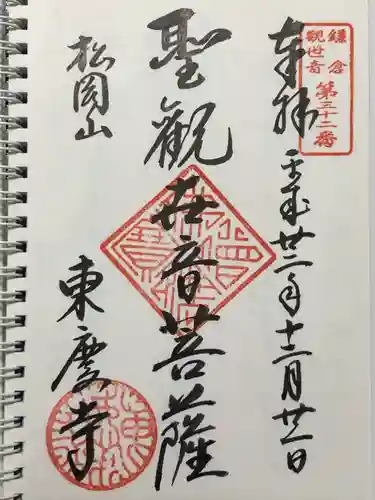 鎌倉
観世音
第三十二番
奉拝
平成廿二年十二月廿一日
聖觀世音菩薩
松岡山
東慶寺